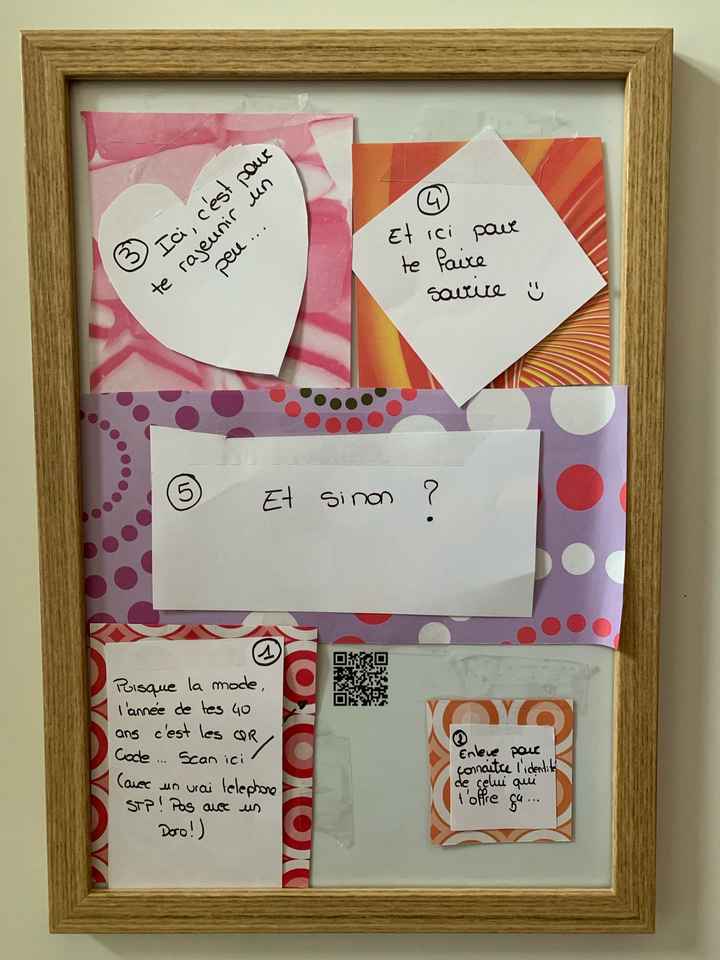 ③ Ici, c'est pour
te rajeunir un
peu....
④
Et ici pour
te faire
sourire ☺
⑤ Et sinon ?
①
Puisque la mode,
l'année de tes 40
ans c'est les QR
Code... Scan ici
(avec un vrai telephone
STP ! Pas avec un
Doro !)
②
Enleve pour
connaitre l'identité
de celui qui
t'offre ça...